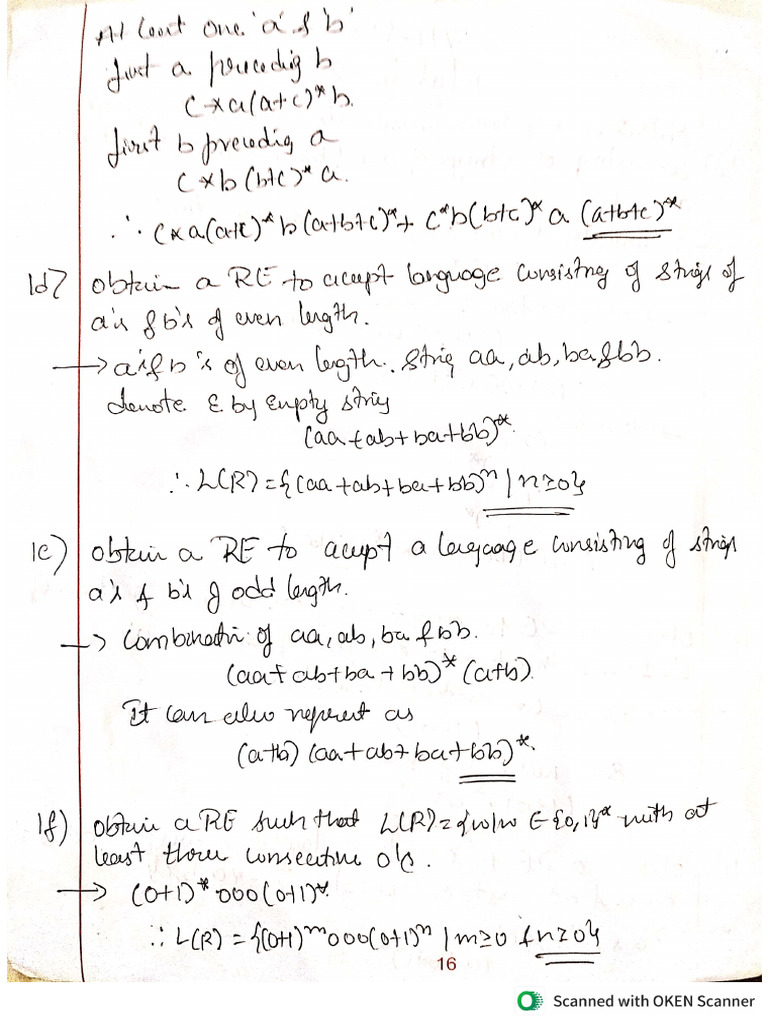 At least one 'a' & 'b'
first a preceding b
c*a(a+c)*b.
first b preceding a
c*b(b+c)*a.
∴ c*a(a+c)*b(a+b+c)*+ c*b(b+c)*a (a+b+c)*
1d) obtain a RE to accept language consisting of strings of
a's & b's of even length.
→ a's & b's of even length. String aa, ab, ba & bb.
denote ε by empty string
(aa+ab+ba+bb)*
∴ L(R)={(aa+ab+ba+bb)ⁿ | n≥0}
1e) obtain a RE to accept a language consisting of strings
a's & b's of odd length.
→ Combination of aa, ab, ba & bb.
(aa+ab+ba+bb)*(a+b).
It can also represent as
(a+b)(aa+ab+ba+bb)*.
1f) obtain a RE such that L(R)={w|w ∈ {0,1}* with at
least three consecutive 0's.
→ (0+1)*000(0+1)*.
∴ L(R) = {(0+1)ᵐ000(0+1)ⁿ | m≥0 & n≥0}
16
Scanned with OKEN Scanner